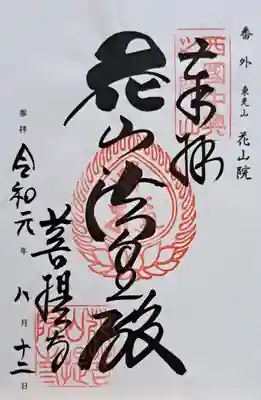 番外 東光山 花山院
奉拝
花山法皇殿
菩提寺
参拝 令和元年八月十二日